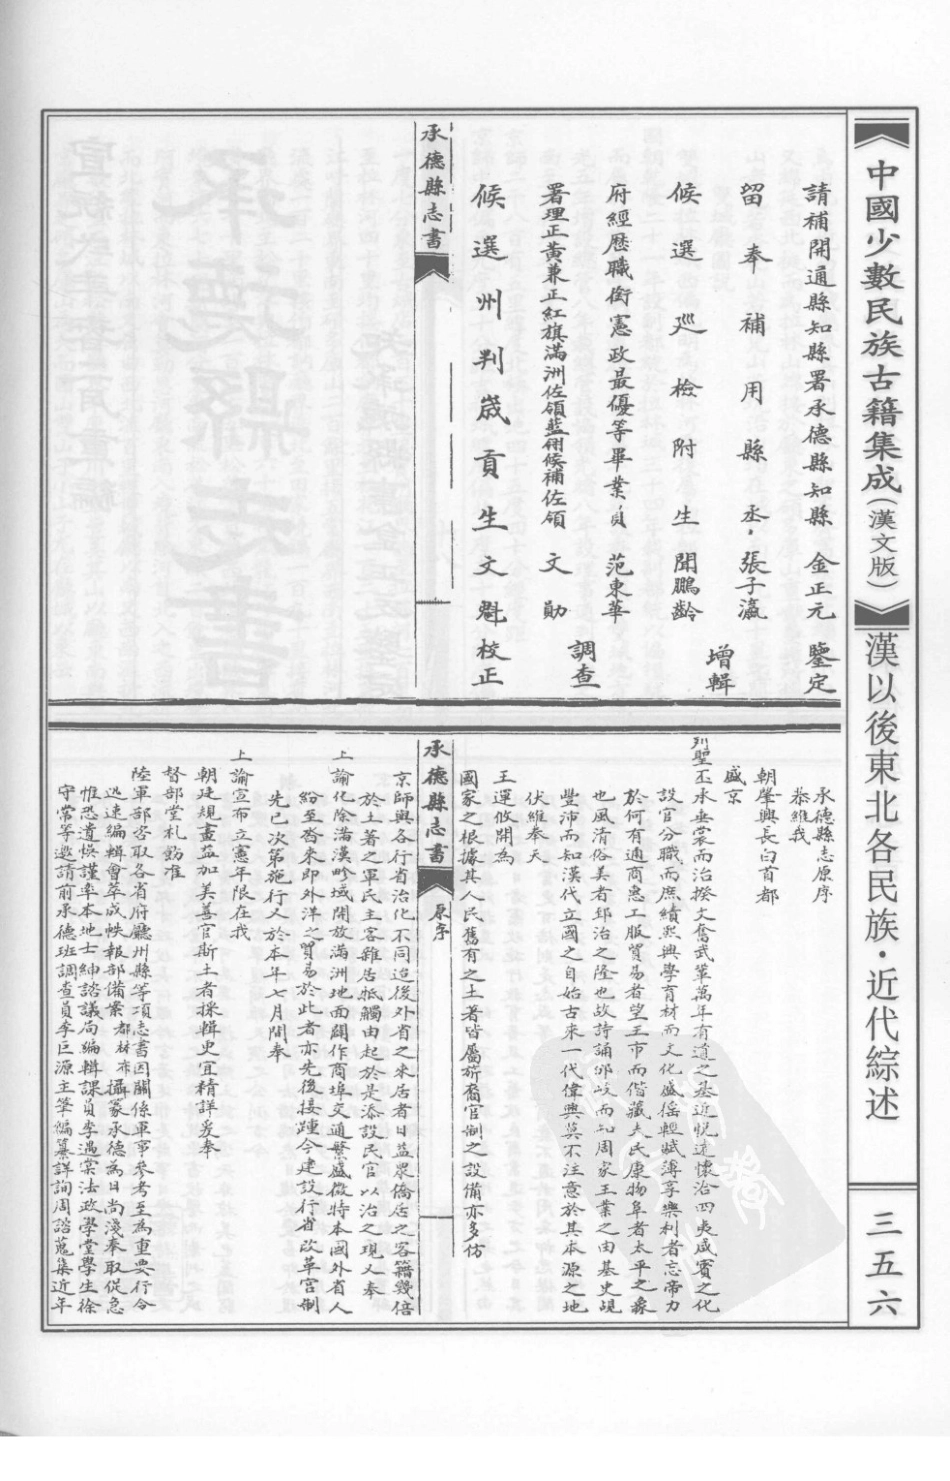 中國少數民族古籍集成(漢文版)
漢以後東北各民族·近代綜述
三五六
請補開通縣知縣署承德縣知縣 金正元 鑒定
留奉補用縣丞 張子瀛
增輯
候選巡檢附生 聞鵬齡
府經歷職銜憲政最優等畢業員 范東華
調查
署理正黃兼正紅旗滿洲佐領藍翎候補佐領 文勛
候選州判歲貢生文魁校正
承德縣志書
承德縣志原序
恭維我
朝肇興長白首都
盛京
列聖丕承垂裳而治揆文奮武鞏萬年有道之基近悅遠懷洽四夷咸賓之化
設官分職而庶績熙興學育材而文化盛徭輕賦薄享樂利者忘帝力
於何有通商惠工服貿易者望王市而偕藏夫民康物阜者太平之象
也風清俗美者郅治之隆也故詩誦邠岐而知周家王業之由基史覘
豐沛而知漢代立國之自始古來一代偉興莫不注意於其本源之地
伏維奉天
王運攸開為
國家之根據其人民舊有之土著皆屬旂裔官制之設備亦多仿
承德縣志書 原序
京師與各行省治化不同迨後外省之來居者日益眾僑店之客籍幾倍
於土著之軍民主客雜居抵觸由起於是添設民官以治之現又奉
上諭化除滿漢畛域開放滿洲地面闢作商埠交通繁盛微特本國外省人
紛至沓來即外洋之貿易於此者亦先後接踵今建設行省改革官制
先已次第施行又於本年七月間奉
上諭宣布立憲年限在我
朝廷規畫益加美善官斯土者採輯史宜精詳爰奉
督部堂札飭准
陸軍部咨取各省府廳州縣等項志書因關係軍事參考至為重要行令
迅速編輯會萃成帙報部備案都林布攝篆承德為日尚淺奉取促急
惟恐遺悞謹率本地士紳諮議局編輯課員李遇棠法政學堂學生徐
守常等邀請前承德班調查員李巨源主筆編纂詳詢周諮蒐集近年